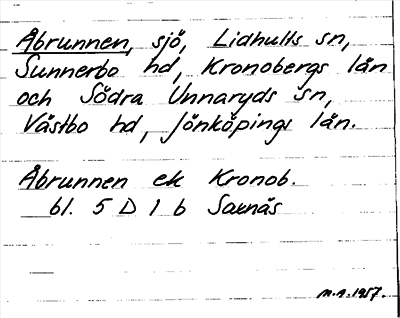 Åbrunnen, sjö, Lidhults sn,
Sunnerbo hd, Kronobergs län
och Södra Unnaryds sn,
Västbo hd, Jönköpings län.
Åbrunnen ek Kronob.
bl. 5 D 1 b Saxnäs
M.A. 1957.